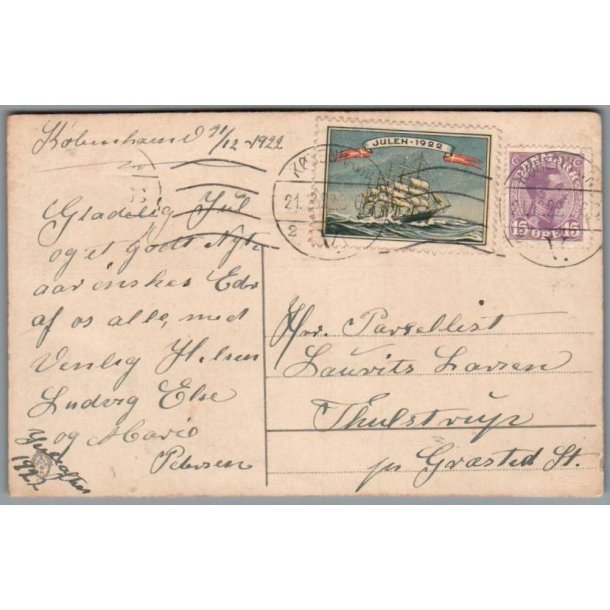 København d 21/12 1922
Glædelig Jul
og et Godt Nyt-
aar ønskes Eder
af os alle, med
Venlig Hilsen
Ludvig Else
og Marie
Petersen
Juleaften
1922
JULEN · 1922
KØ
21.
2
DANMARK
15 ØRE 15
Hrr. Parsellist
Lauritz Larsen
Thulstrup
pr Græsted St.